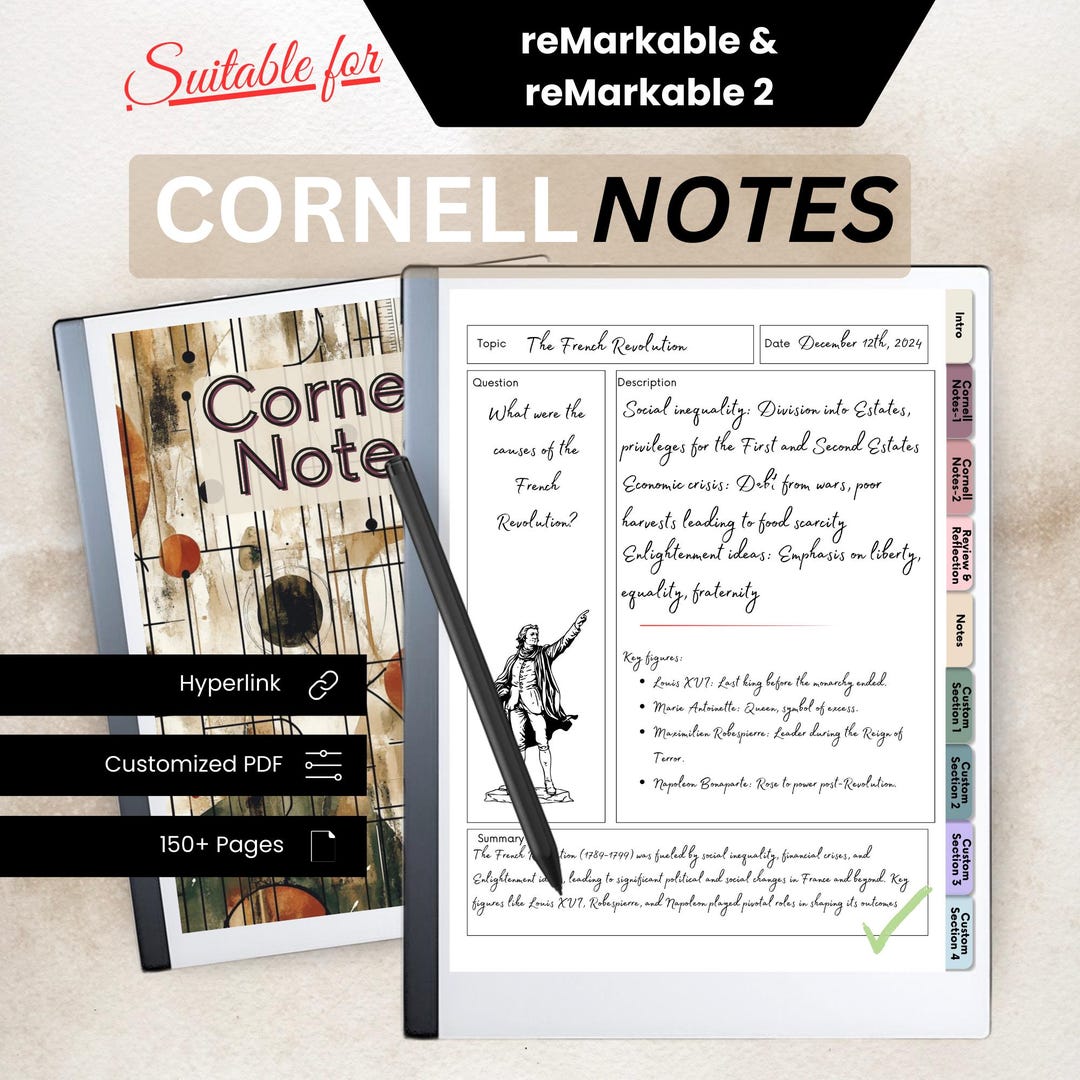 Suitable for
reMarkable &
reMarkable 2
CORNELL NOTES
Corne
Note
Hyperlink
Customized PDF
150+ Pages
Topic The French Revolution
Date December 12th, 2024
Question
What were the
causes of the
French
Revolution?
Description
Social inequality: Division into Estates,
privileges for the First and Second Estates
Economic crisis: from wars, poor
harvests leading to food scarcity
Enlightenment ideas: Emphasis on liberty,
equality, fraternity
Key figures:
• Louis XVI: Last king before the monarchy ended.
• Marie Antoinette: Queen, symbol of excess.
• Maximilien Robespierre: Leader during the Reign of
Terror.
• Napoleon Bonaparte: Rose to power post-Revolution.
Summary
The French (1789-1799) was fueled by social inequality, financial crises, and
Enlightenment leading to significant political and social changes in France and beyond. Key
figures like Louis XVI, Robespierre, and Napoleon played pivotal roles in shaping its outcomes
Intro
Cornell
Notes-1
Cornell
Notes-2
Review &
Reflection
Notes
Custom
Section 1
Custom
Section 2
Custom
Section 3
Custom
Section 4